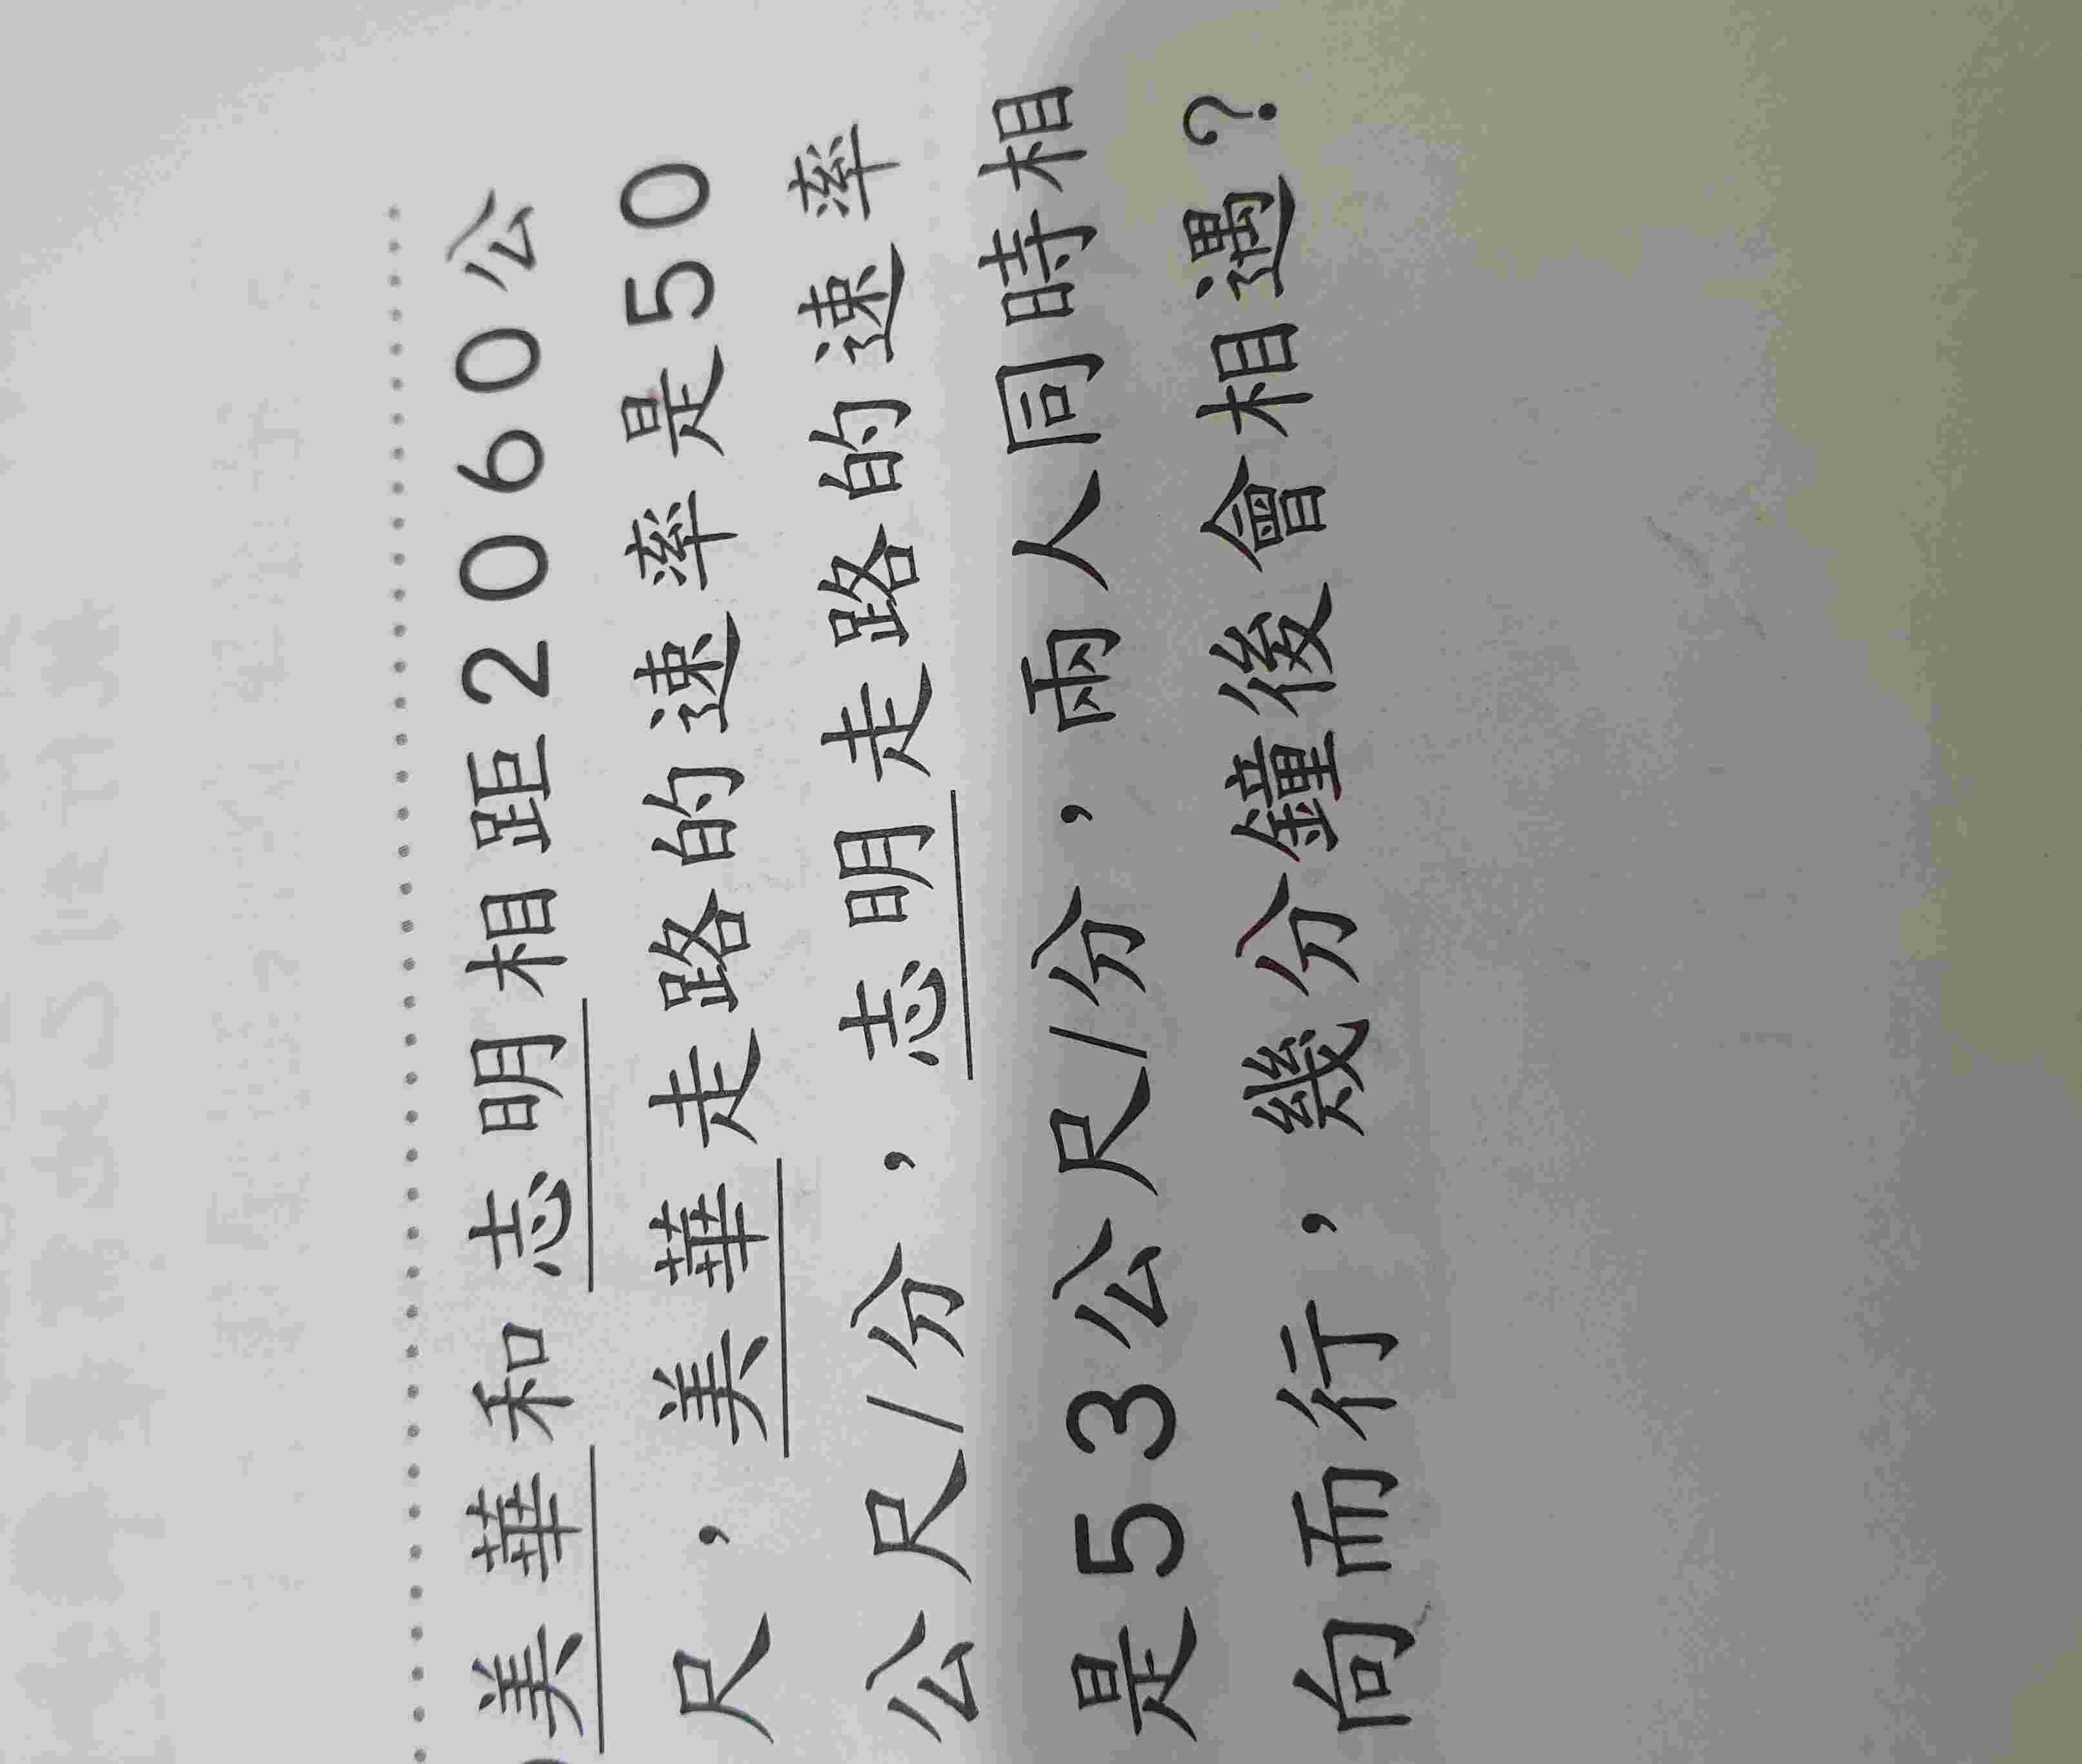 美華和志明相距2060公
尺，美華走路的速率是50
公尺/分，志明走路的速率
是53公尺/分，兩人同時相
向而行，幾分鐘後會相遇？